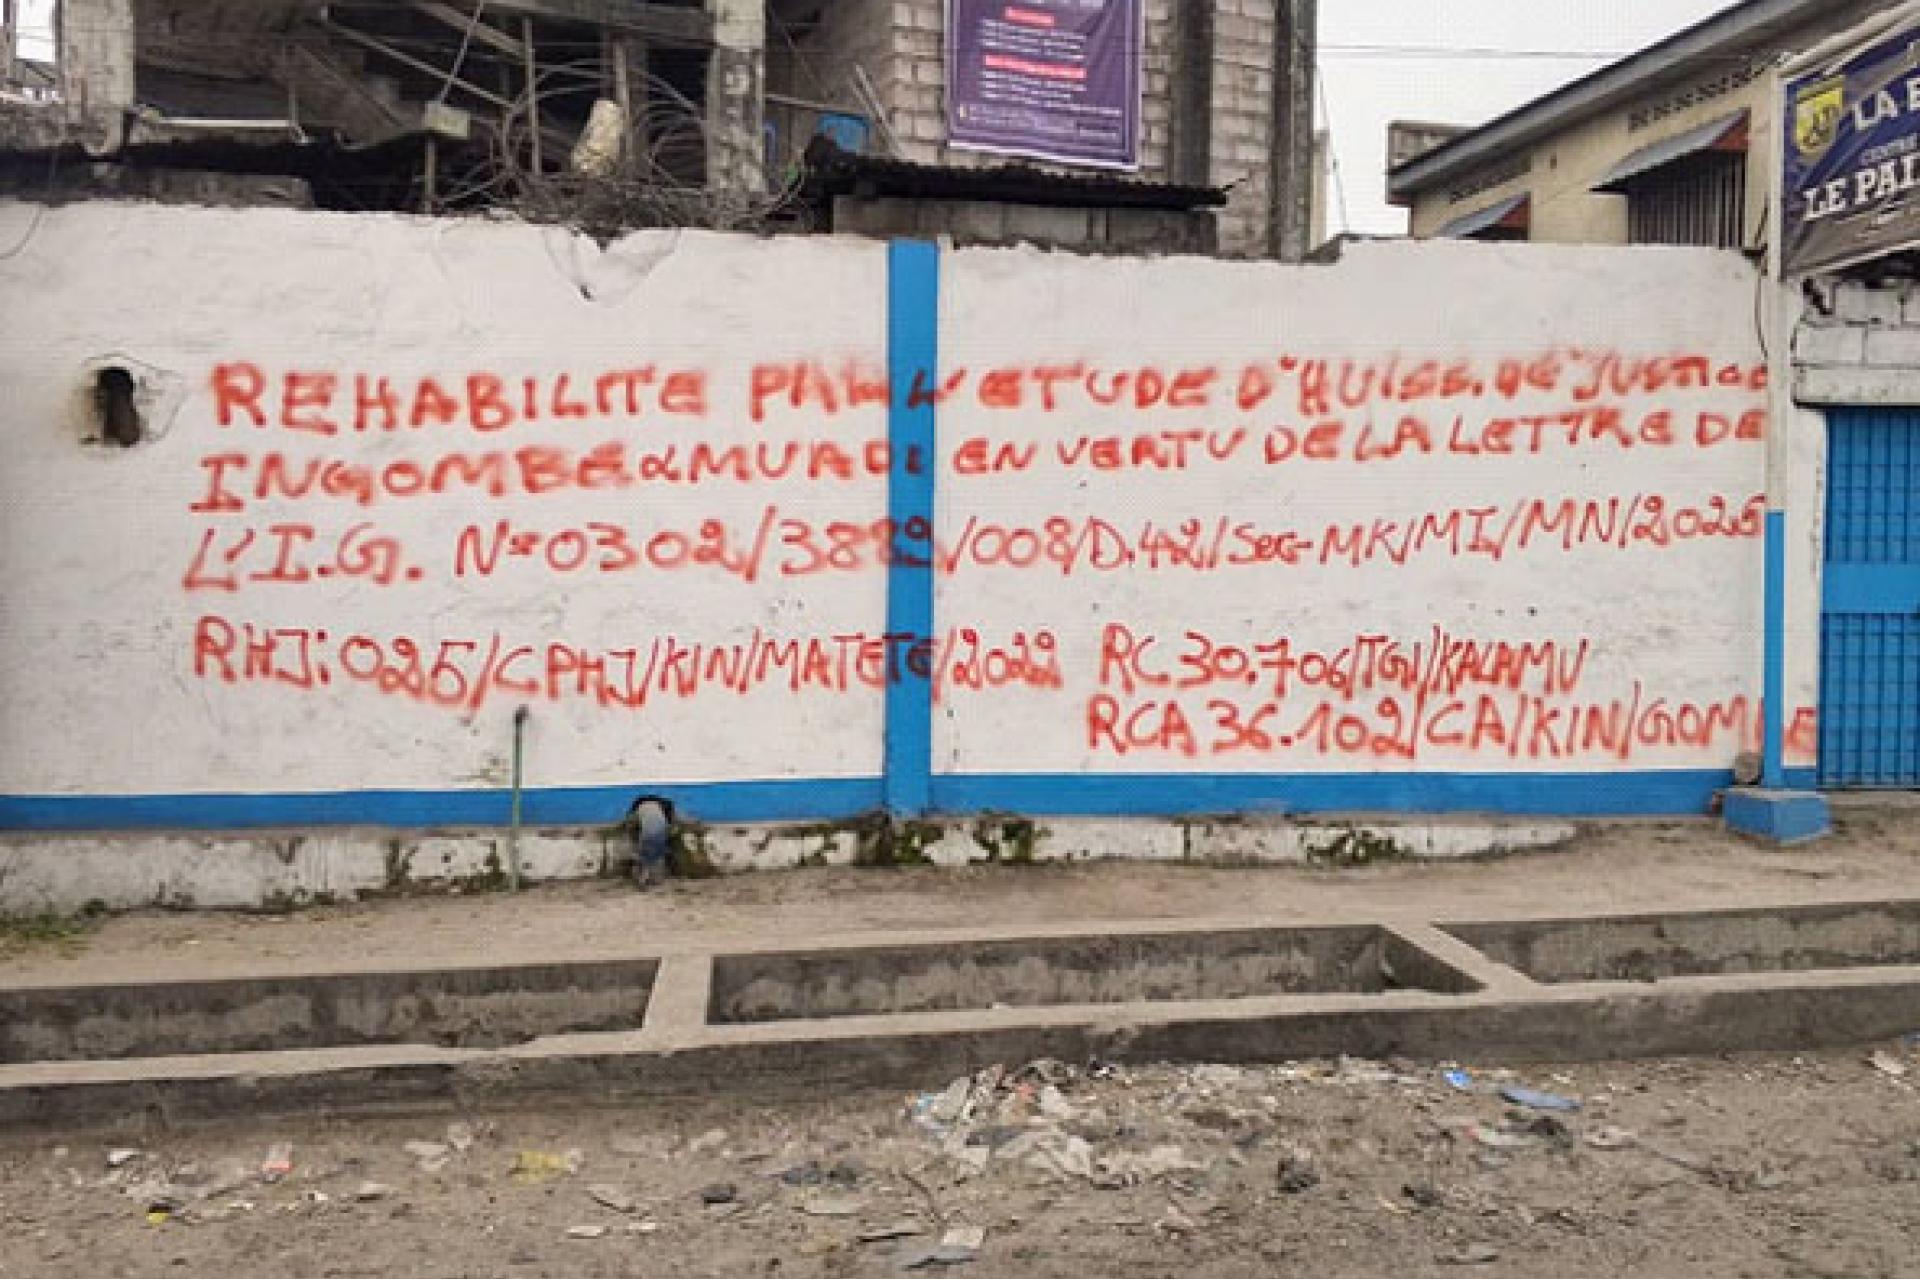 REHABILITE PAR L'ETUDE D'HUISS. DE JUSTICE
INGOMBE & MUADI EN VERTU DE LA LETTRE DE
L'I.G. N°0302/3889/008/D.42/SEC-MK/MI/MN/2025
RHJ: 025/CPHJ/KIN/MATETE/2022 RC 30.706/TGI/KALAMU
RCA 36.102/CA/KIN/GOMBE
LA
LE